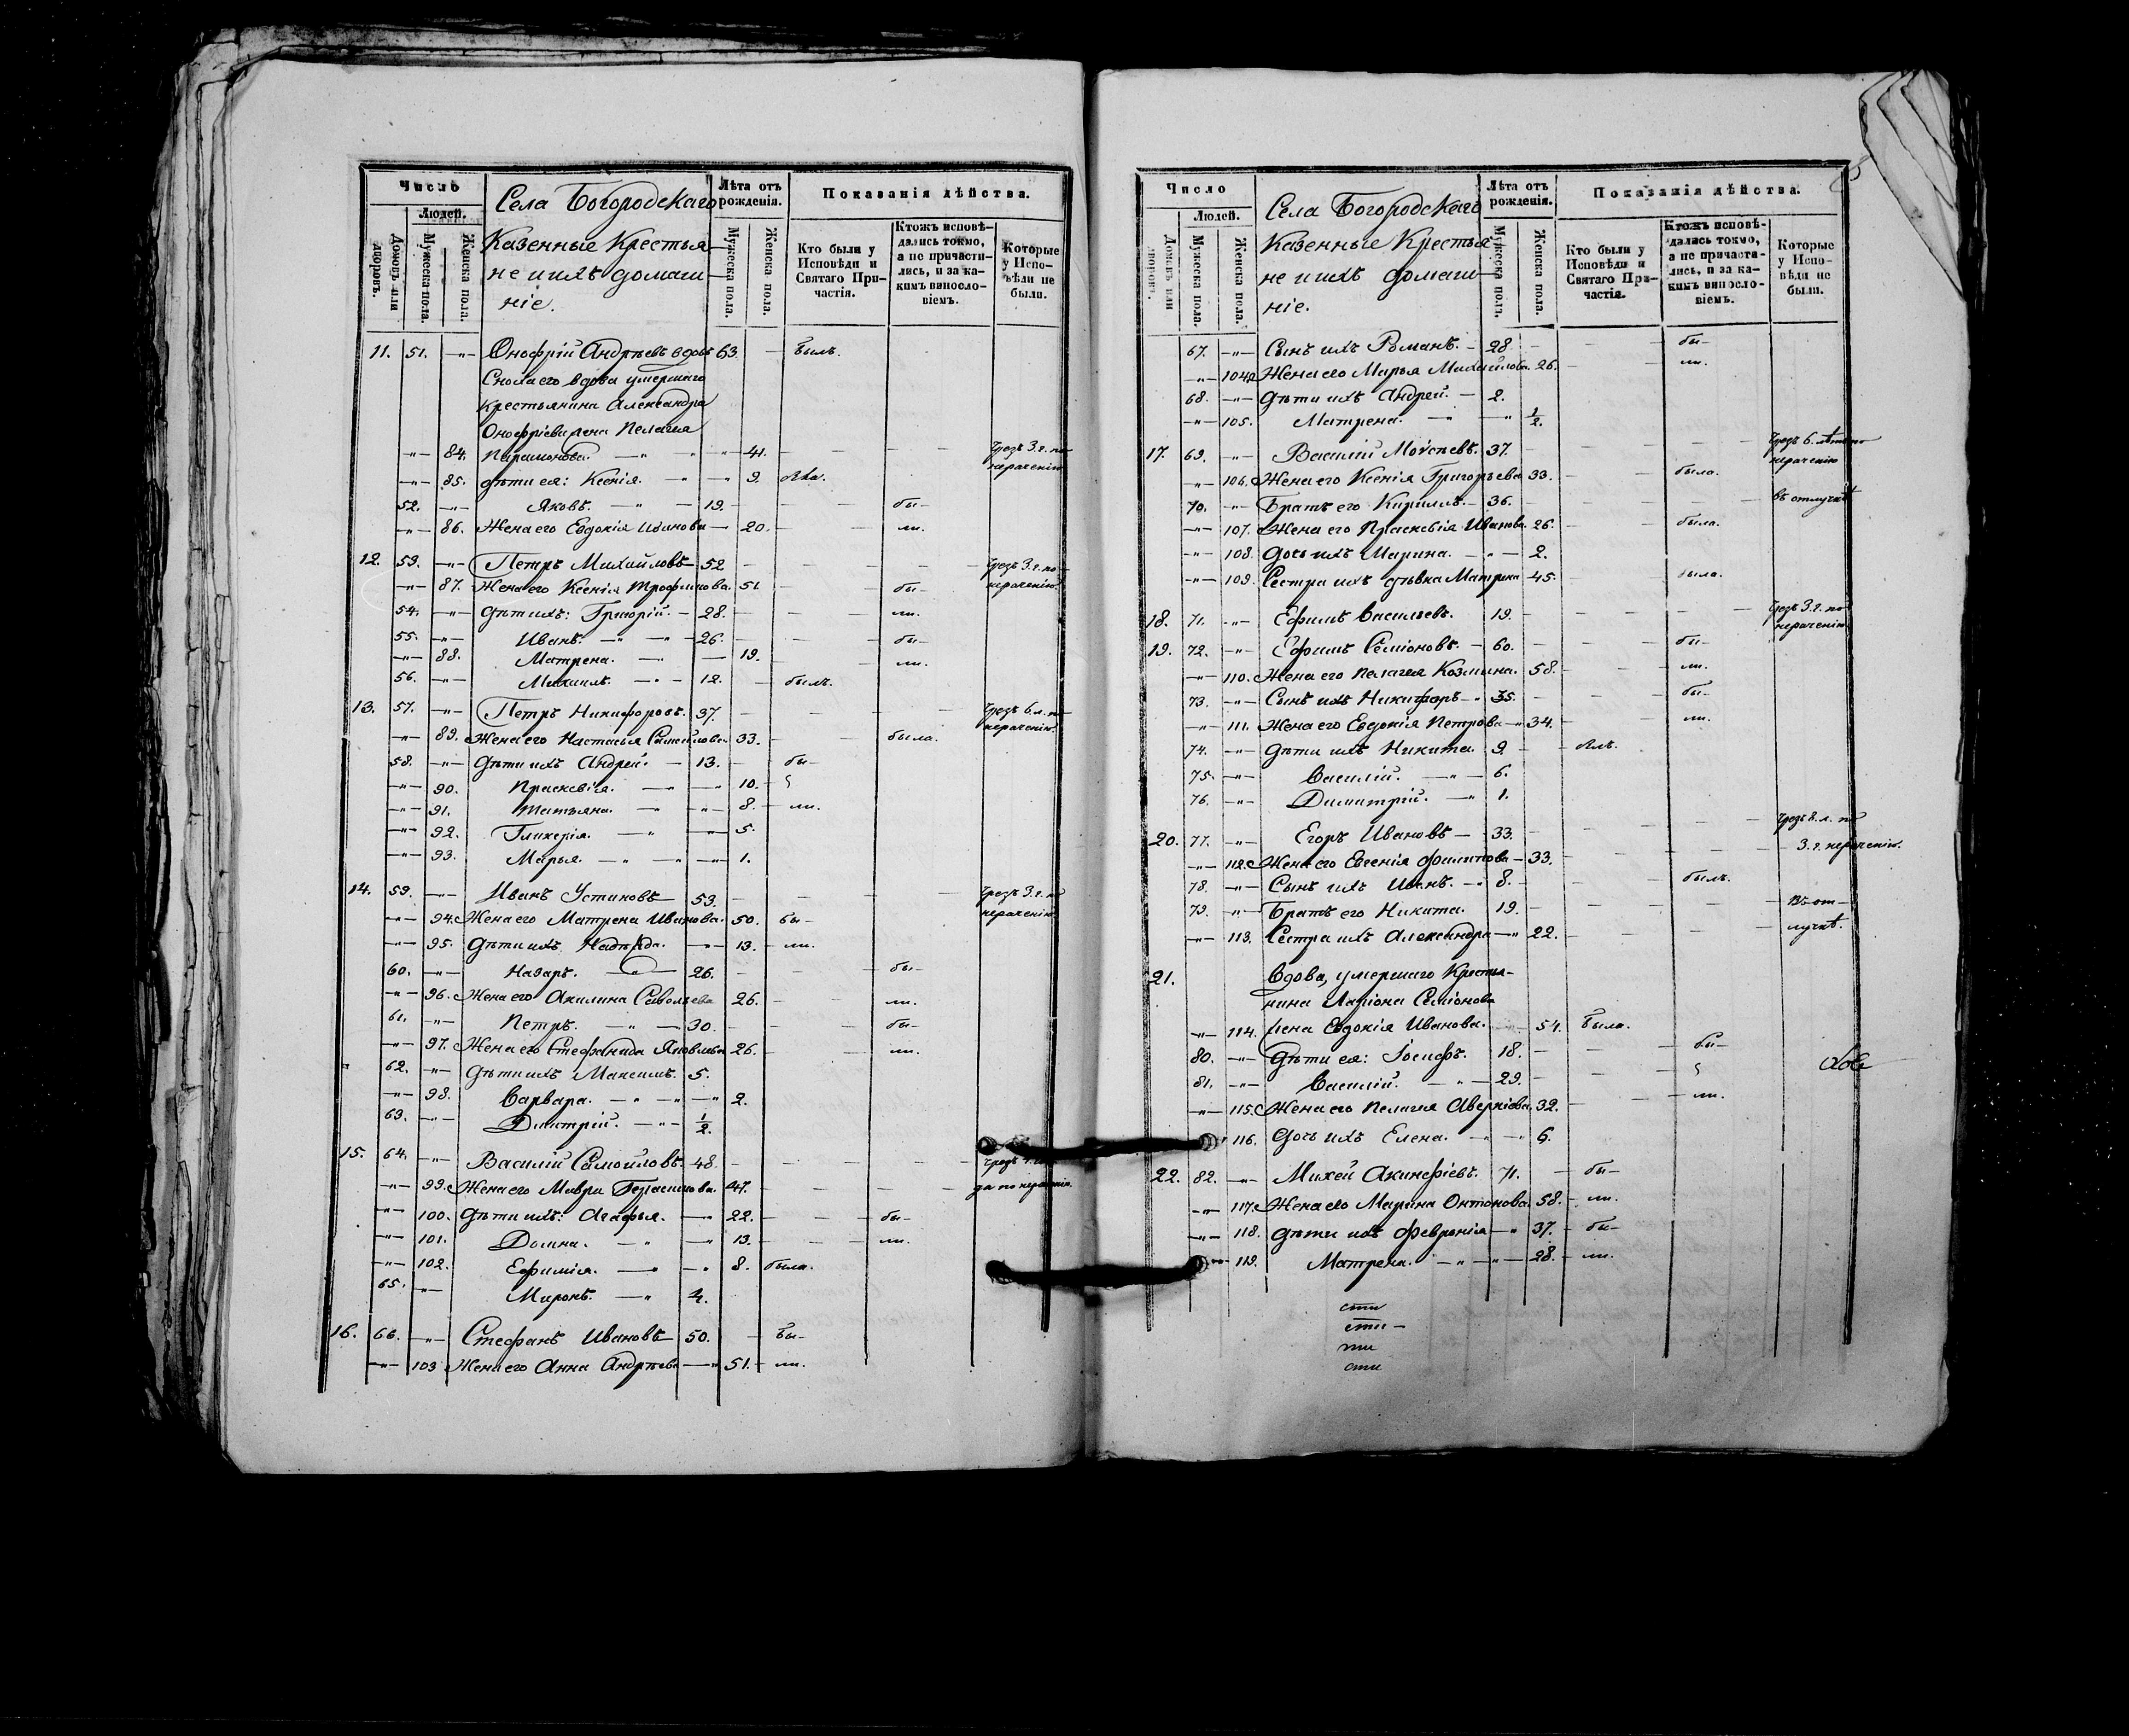 Число
Людей.
Домовъ или дворовъ.
Мужеска пола.
Женска пола.
Села Богородскаго
Казенные Крестья-
не и ихъ домаш-
ніе.
Лѣта отъ рожденія.
Мужеска пола.
Женска пола.
Показанія дѣйства.
Кто были у Исповѣди и Святаго При-частія.
Ктожъ исповѣ-дались токмо, а не причасти-лись, и за ка-кимъ винослo-віемъ.
Которые у Испо-вѣди не были.
11. 51. —"— Онофрій Андрѣевъ вдовъ 63. — былъ.
Сноха его вдова умершаго
Крестьянина Александра
Онофріева жена Пелагея
—"— 84. Парамонова. —"— 41. — — — Чрезъ 3. г. по
—"— 85. дѣти ея: Ксенія. —"— 9. нераченію
52. —"— Яковъ. —"— 19. — — бы-
—"— 86. Жена его Евдокія Иванова — 20. — — ли.
12. 53. —"— Петръ Михайловъ — 52 — — — Чрезъ 3. г. по
—"— 87. Жена его Ксенія Трофимова. 51 — бы- нераченію.
54. —"— Дѣти ихъ: Григорій. — 28. — — ли.
55. —"— Иванъ. —"— 26. — — бы-
—"— 88. Матрена. —"— 19. — — ли.
56. —"— Михаилъ. —"— 12. — былъ.
13. 57. —"— Петръ Никифоровъ. 37. — — — Чрезъ 6. л. по
—"— 89. Жена его Настасья Самойлова 33. — была. нераченію.
58. —"— Дѣти ихъ Андрей. — 13. — бы-
—"— 90. Праскевія. —"— 10. —
—"— 91. Татьяна. —"— 8. — ли.
—"— 92. Гликерія. —"— 5.
—"— 93. Марья. —"— 1.
14. 59. —"— Иванъ Устиновъ — 53. — — — Чрезъ 3. г. по
—"— 94. Жена его Матрена Иванова. 50. бы- нераченію.
—"— 95. Дѣти ихъ Надежда. —"— 13. — ли.
60. —"— Назаръ. —"— 26. — — бы-
—"— 96. Жена его Акилина Савельева 26. — — ли.
61. —"— Петръ. —"— 30. — — бы-
—"— 97. Жена его Стефанида Яковлева 26. — — ли.
62. —"— Дѣти ихъ Максимъ. 5.
—"— 98. Варвара. —"— 2.
63. —"— Димитрій. —"— 1/2.
15. 64. —"— Василій Самойловъ. 48. — — —
—"— 99. Жена его Мавра Герасимова. 47. — — — да по нераченію.
—"— 100. Дѣти ихъ: Агафья. —"— 22. — — бы-
—"— 101. Домна. —"— 13. — — ли.
—"— 102. Ефимія. —"— 8. была.
65. —"— Миронъ. —"— 4.
16. 66. —"— Стефанъ Ивановъ — 50. — бы-
—"— 103 Жена его Анна Андрѣева —"— 51. — ли.
Число
Людей.
Домовъ или дворовъ.
Мужеска пола.
Женска пола.
Села Богородскаго
Казенные Крестья-
не и ихъ домаш-
ніе.
Лѣта отъ рожденія.
Мужеска пола.
Женска пола.
Показанія дѣйства.
Кто были у Исповѣди и Святаго При-частія.
Ктожъ исповѣ-дались токмо, а не причасти-лись, и за ка-кимъ винослo-віемъ.
Которые у Испо-вѣди не были.
67. —"— Сынъ ихъ Романъ. — 28. — — бы-
—"— 104. Жена его Марья Михайлова. 26. — ли.
68. —"— Дѣти ихъ Андрей. — 2.
—"— 105. Матрена. —"— 1/2.
17. 69. —"— Василій Моѵсѣевъ. 37. — — — Чрезъ 6. лѣтъ по
—"— 106. Жена его Ксенія Григорьева 33. — была. нераченію
70. —"— Братъ его Кириллъ. — 36. — — — въ отлучкѣ
—"— 107. Жена его Праскевія Иванова. 26. — была.
—"— 108. Дочь ихъ Марина. —"— 2.
—"— 109. Сестра ихъ дѣвка Матрена 45. — была.
18. 71. —"— Ефимъ Васильевъ. 19. — — — Чрезъ 3. г. по
нераченію
19. 72. —"— Ефимъ Семіоновъ. — 60. — — бы-
—"— 110. Жена его Пелагея Козмина. 58. — — ли.
73. —"— Сынъ ихъ Никифоръ —"— 35. — — бы-
—"— 111. Жена его Евдокія Петрова —"— 34. — — ли.
74. —"— Дѣти ихъ Никита. 9. —
75. —"— Василій. —"— 6.
76. —"— Димитрій. —"— 1.
20. 77. —"— Егоръ Ивановъ — 33. — — — Чрезъ 2. л. по
—"— 112. Жена его Евгенія Филипова — 33. — — 3. г. нераченію.
78. —"— Сынъ ихъ Иванъ. —"— 8. — — былъ.
79. —"— Братъ его Никита. 19. — — — въ от-
—"— 113. Сестра ихъ Александра —"— 22. — — — лучкѣ.
21. Вдова, умершаго Крестья-
нина Ларіона Семіонова
—"— 114. жена Евдокія Иванова. 54. была.
80. —"— Дѣти ея: Іосифъ. 18. — — бы-
81. —"— Василій. —"— 29. — —
—"— 115. Жена его Пелагея Аверкіева 32. — — ли.
116. Дочь ихъ Елена. —"— 6.
22. 82. —"— Михей Акинфіевъ. 71. — бы-
—"— 117. Жена его Марина Онтонова. 58. — ли.
—"— 118. Дѣти ихъ Февронія —"— 37. — бы-
—"— 119. Матрена. —"— 28. — ли.